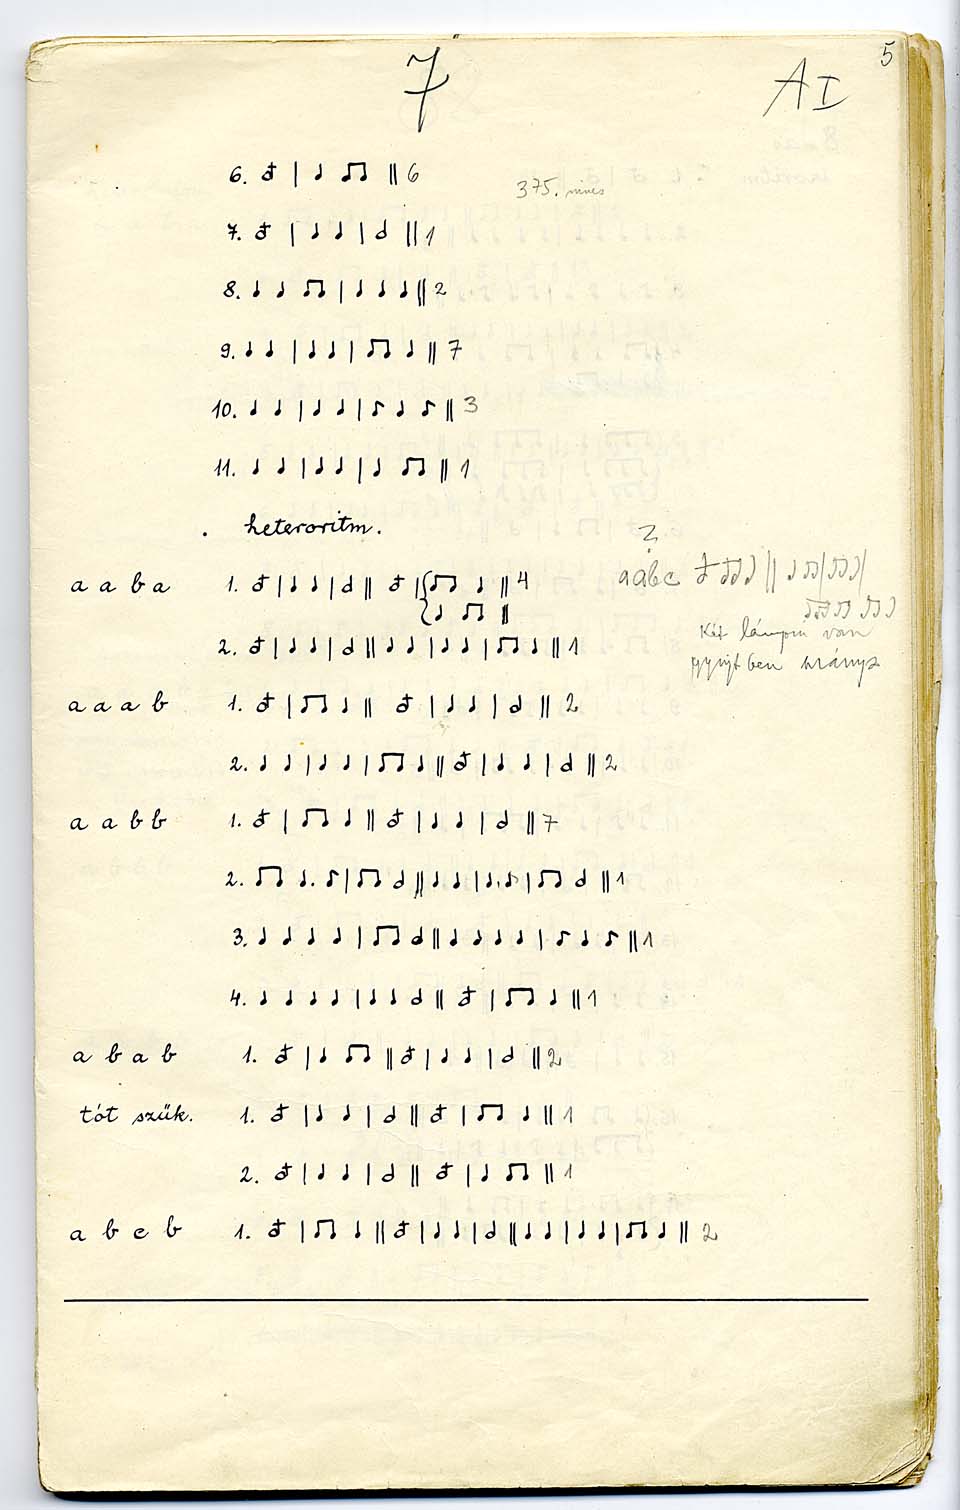 5
7
A I
6. || 6
375. nincs
7. || 1
8. || 2
9. || 7
10. || 3
11. || 1
heteroritm.
?
a a b a 1. || 4
aabc
2. || 1
Két van
ben
a a a b 1. || 2
2. || 2
a a b b 1. || 7
2. || 1
3. || 1
4. || 1
a b a b 1. || 2
tót szük. 1. || 1
2. || 1
a b c b 1. || 2